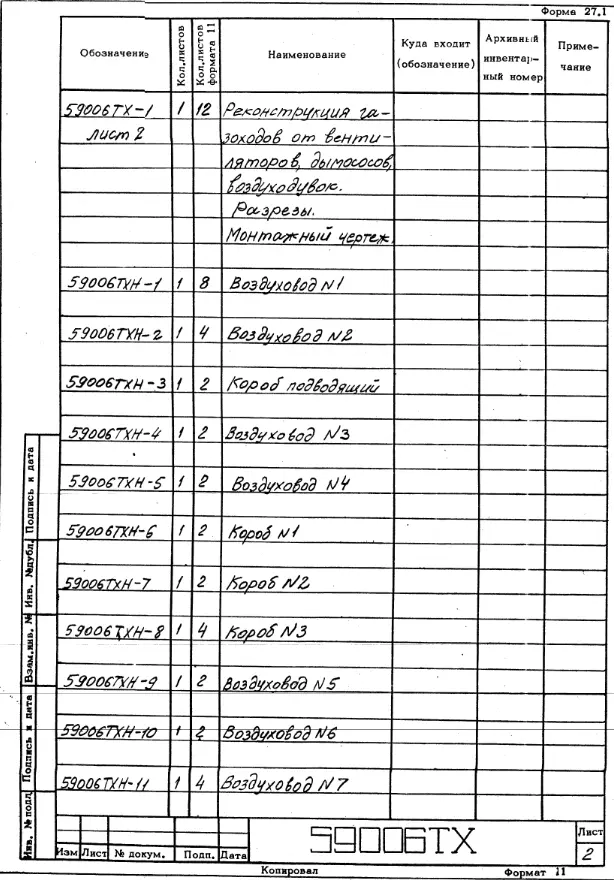 Форма 27.1
Обозначение Кол.листов Кол.листов формата 11 Наименование Куда входит (обозначение) Архивный инвентарный номер Примечание
59006ТХ-1 1 12 Реконструкция га-
лист 2 зоходов от венти-
ляторов, дымососов,
воздуходувок.
Разрезы.
Монтажный чертеж.
59006ТХН-1 1 8 Воздуховод N1
59006ТХН-2 1 4 Воздуховод N2
59006ТХН-3 1 2 Короб подводящий
59006ТХН-4 1 2 Воздуховод N3
59006ТХН-5 1 2 Воздуховод N4
59006ТХН-6 1 2 Короб N1
59006ТХН-7 1 2 Короб N2
59006ТХН-8 1 4 Короб N3
59006ТХН-9 1 2 Воздуховод N5
59006ТХН-10 1 2 Воздуховод N6
59006ТХН-11 1 4 Воздуховод N7
Подпись и дата
Инв. №дубл.
Взам.инв. №
Подпись и дата
Инв. №подл.
Изм Лист № докум. Подп. Дата
59006ТХ
Лист
2
Копировал Формат 11